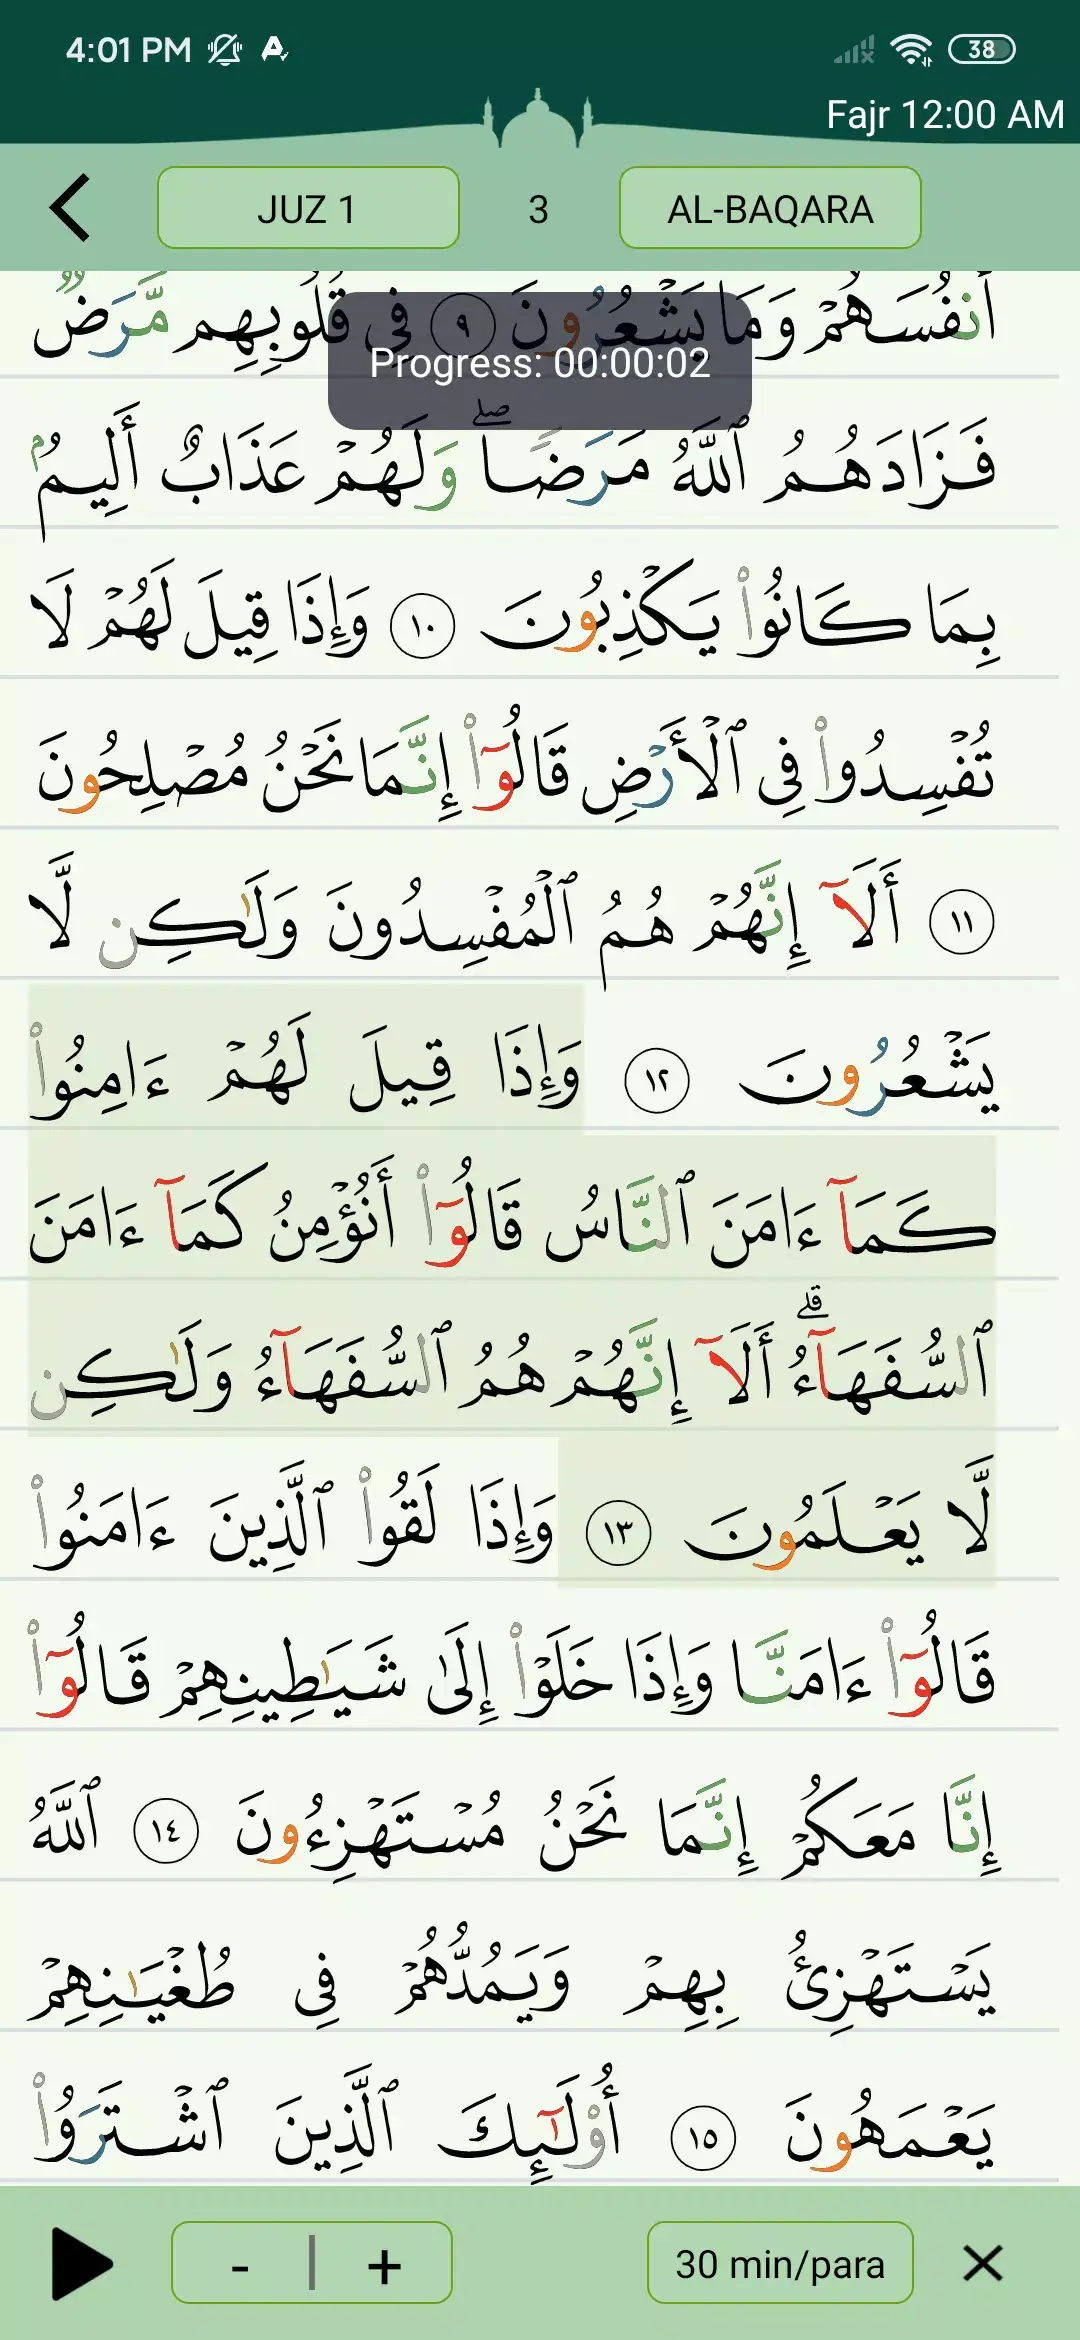 4:01 PM 38
Fajr 12:00 AM
JUZ 1 3 AL-BAQARA
أَنفُسَهُمْ وَمَا يَشْعُرُونَ ٩ فِى قُلُوبِهِم مَّرَضٌ
Progress: 00:00:02
فَزَادَهُمُ ٱللَّهُ مَرَضًا ۖ وَلَهُمْ عَذَابٌ أَلِيمٌۢ
بِمَا كَانُوا۟ يَكْذِبُونَ ١٠ وَإِذَا قِيلَ لَهُمْ لَا
تُفْسِدُوا۟ فِى ٱلْأَرْضِ قَالُوٓا۟ إِنَّمَا نَحْنُ مُصْلِحُونَ
١١ أَلَآ إِنَّهُمْ هُمُ ٱلْمُفْسِدُونَ وَلَـٰكِن لَّا
يَشْعُرُونَ ١٢ وَإِذَا قِيلَ لَهُمْ ءَامِنُوا۟
كَمَآ ءَامَنَ ٱلنَّاسُ قَالُوٓا۟ أَنُؤْمِنُ كَمَآ ءَامَنَ
ٱلسُّفَهَآءُ ۗ أَلَآ إِنَّهُمْ هُمُ ٱلسُّفَهَآءُ وَلَـٰكِن
لَّا يَعْلَمُونَ ١٣ وَإِذَا لَقُوا۟ ٱلَّذِينَ ءَامَنُوا۟
قَالُوٓا۟ ءَامَنَّا وَإِذَا خَلَوْا۟ إِلَىٰ شَيَـٰطِينِهِمْ قَالُوٓا۟
إِنَّا مَعَكُمْ إِنَّمَا نَحْنُ مُسْتَهْزِءُونَ ١٤ ٱللَّهُ
يَسْتَهْزِئُ بِهِمْ وَيَمُدُّهُمْ فِى طُغْيَـٰنِهِمْ
يَعْمَهُونَ ١٥ أُو۟لَـٰٓئِكَ ٱلَّذِينَ ٱشْتَرَوُا۟
- | + 30 min/para